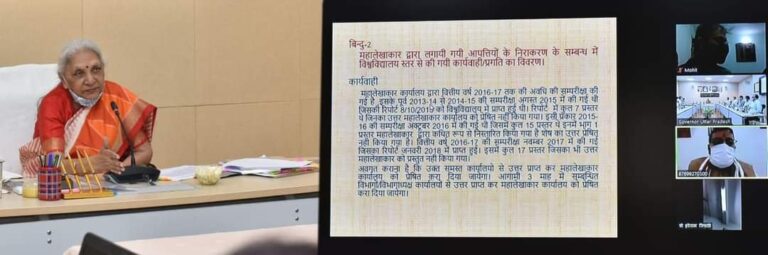 बिन्दु-2
महालेखाकार द्वारा लगायी गयी आपत्तियों के निराकरण के सम्बन्ध में
विश्वविद्यालय स्तर से की गयी कार्यवाही/प्रगति का विवरण।
कार्यवाही
महालेखाकार कार्यालय द्वारा वित्तीय वर्ष 2016-17 तक की अवधि की सम्परीक्षा की
गई है इसके पूर्व 2013-14 से 2014-15 की सम्परीक्षा अगस्त 2015 में की गई थी
जिसकी रिपोर्ट 8/10/2019 को विश्वविद्यालय में प्राप्त हुई थी। रिपोर्ट में कुल 7 प्रस्तर
थे जिनका उत्तर महालेखाकार कार्यालय को प्रेषित नहीं किया गया। इसी प्रकार 2015-
16 की सम्परीक्षा अक्टूबर 2016 में की गई थी जिसमें कुल 15 प्रस्तर थे इनमें भाग 1
प्रस्तर महालेखाकार द्वारा कथित रूप से निस्तारित किया गया है शेष का उत्तर प्रेषित
नहीं किया गया है। वित्तीय वर्ष 2016-17 की सम्परीक्षा नवम्बर 2017 में की गई
जिसका रिपोर्ट जनवरी 2018 में प्राप्त हुई। इसमें कुल 17 प्रस्तर जिसका भी उत्तर
महालेखाकार को प्रस्तुत नहीं किया गया।
अवगत कराना है कि उक्त समस्त कार्यालयों से उत्तर प्राप्त कर महालेखाकार
कार्यालय को प्रेषित करा दिया जायेगा। आगामी 3 माह में सम्बन्धित
विभागों/विभागाध्यक्ष कार्यालयों से उत्तर प्राप्त कर महालेखाकार कार्यालय को प्रेषित
करा दिया जायेगा।
Mohit
Governor Uttar Pradesh